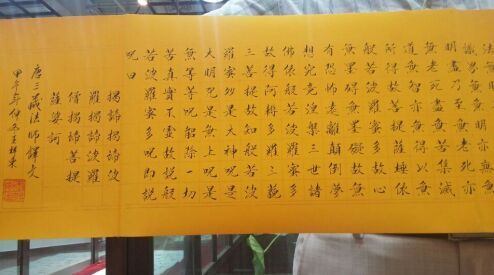 法無眼界乃至無意
識界無無明亦無無
明盡乃至無老死亦
無老死盡無苦集滅
道無智亦無得以無
所得故菩提薩埵依
般若波羅蜜多故心
無罣礙無罣礙故無
有恐怖遠離顛倒夢
想究竟涅槃三世諸
佛依般若波羅蜜多
故得阿耨多羅三藐
三菩提故知般若波
羅蜜多是大神呪是
大明呪是無上呪是
無等等呪能除一切
苦真實不虛故說般
若波羅蜜多呪即說
呪曰
揭諦揭諦波
羅揭諦波羅
僧揭諦菩提
薩婆訶
唐三藏法師譯文
甲午年仲